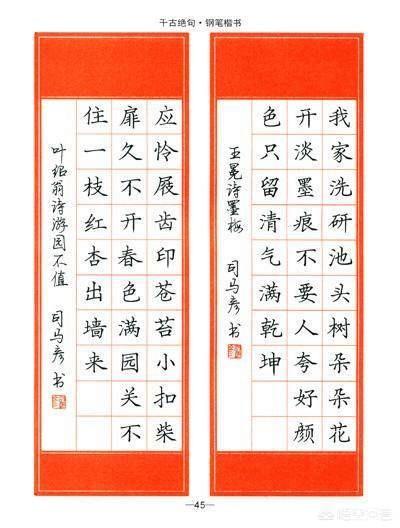 千古绝句·钢笔楷书
我家洗研池头树朵朵花
开淡墨痕不要人夸好颜
色只留清气满乾坤
王冕诗墨梅 司马彦书
应怜屐齿印苍苔小扣柴
扉久不开春色满园关不
住一枝红杏出墙来
叶绍翁诗游园不值 司马彦书
—45—
悟空问答